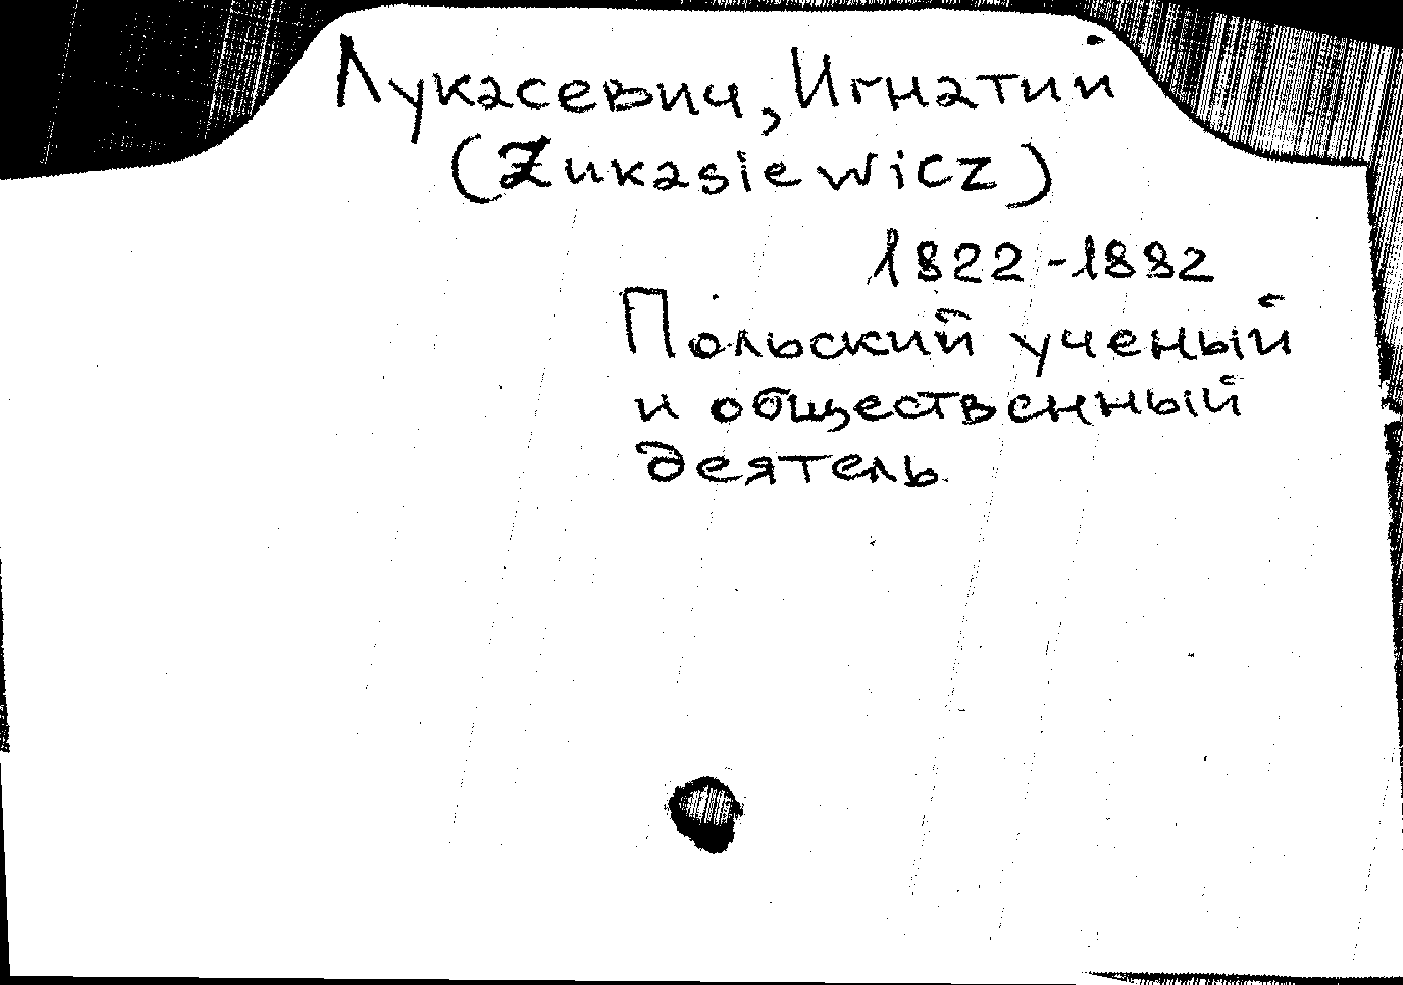 Лукасевич, Игнатий
(Łukasiewicz)
1822-1882
Польский ученый
и общественный
деятель